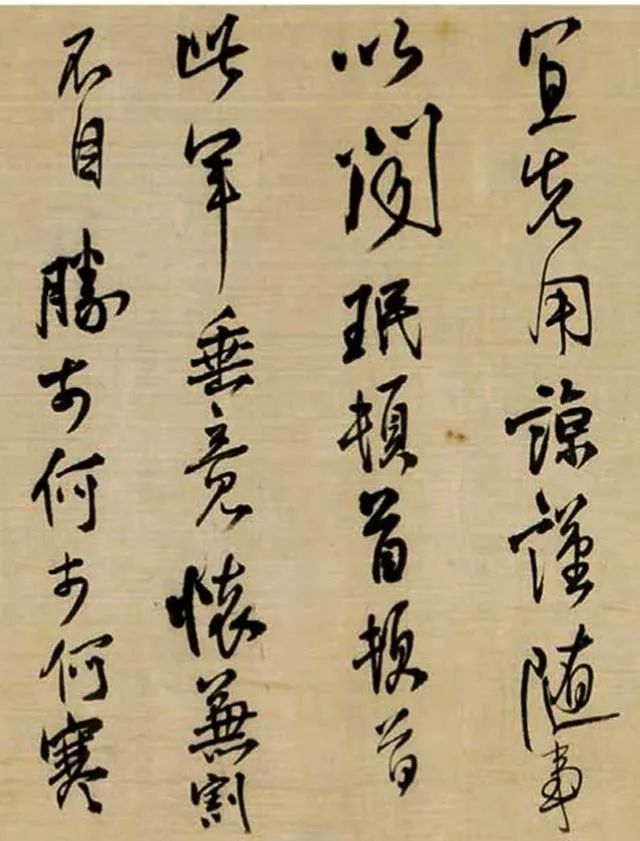 宜先用諒謹隨事
以聞珉頓首頓首
此年垂竟懷兼割
不自勝奈何奈何寒